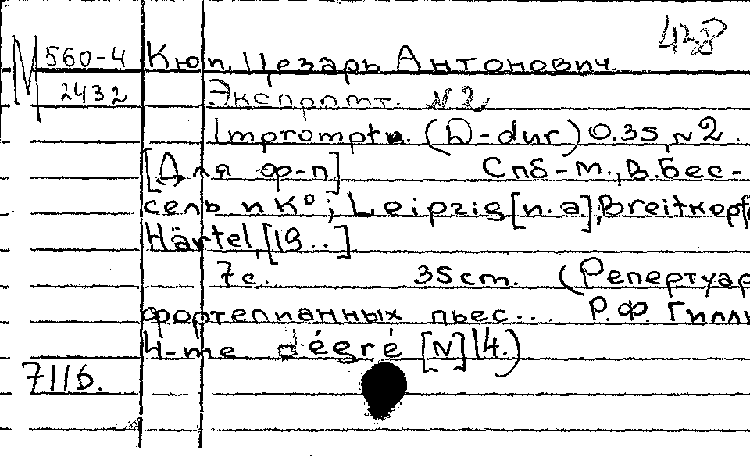 438
М 560-4 Кюи, Цезарь Антонович
2432 Экспромт. №2
Impromptu. (D-dur) O.35, №2.
[Для ф-п] Спб-М., В. Бес-
сель и К°; Leipzig [и. а.], Breitkopf
Härtel, [19..]
7с. 35cm. (Репертуар
фортепианных пьес... Р.Ф. Гилли
4-me dégré [N] 14.)
7116.